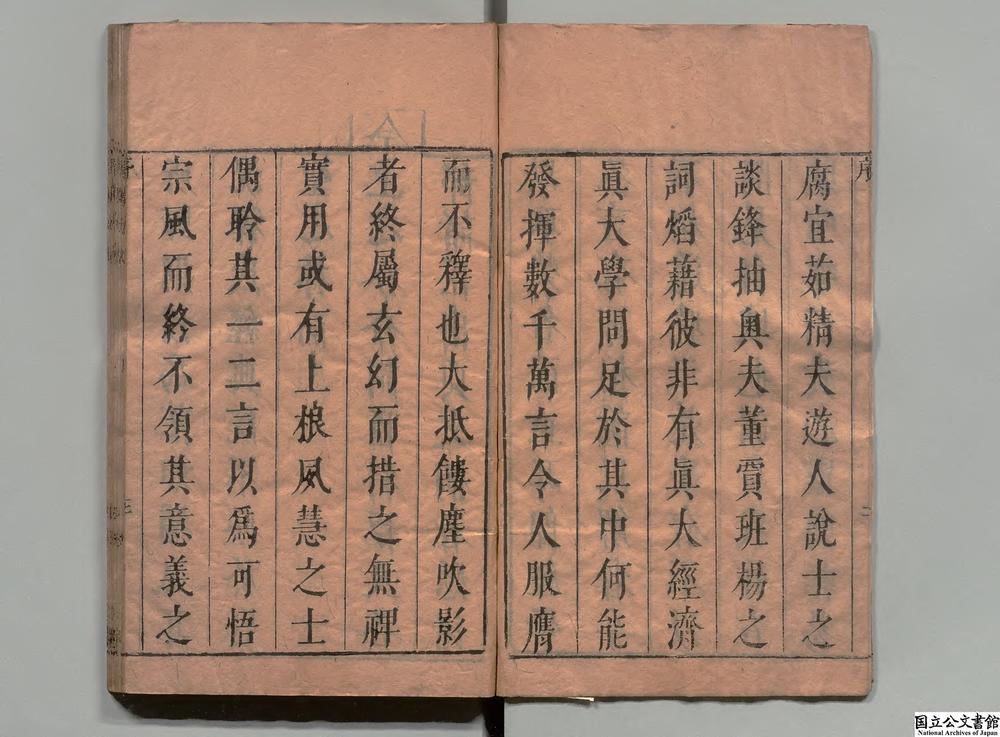 序
腐宜茹精夫遊人說士之
談鋒抽奧夫董賈班楊之
詞熖藉彼非有眞大經濟
眞大學問足於其中何能
發揮數千萬言令人服膺
而不釋也大抵餖塵吹影
者終屬玄幻而措之無裨
實用或有上根夙慧之士
偶聆其一二言以爲可悟
宗風而終不領其意義之
国立公文書館
National Archives of Japan